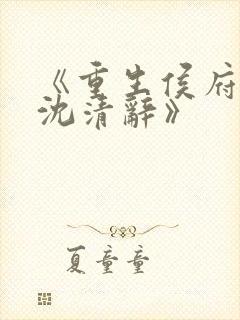 《重生侯府
沈清辭》
夏童童